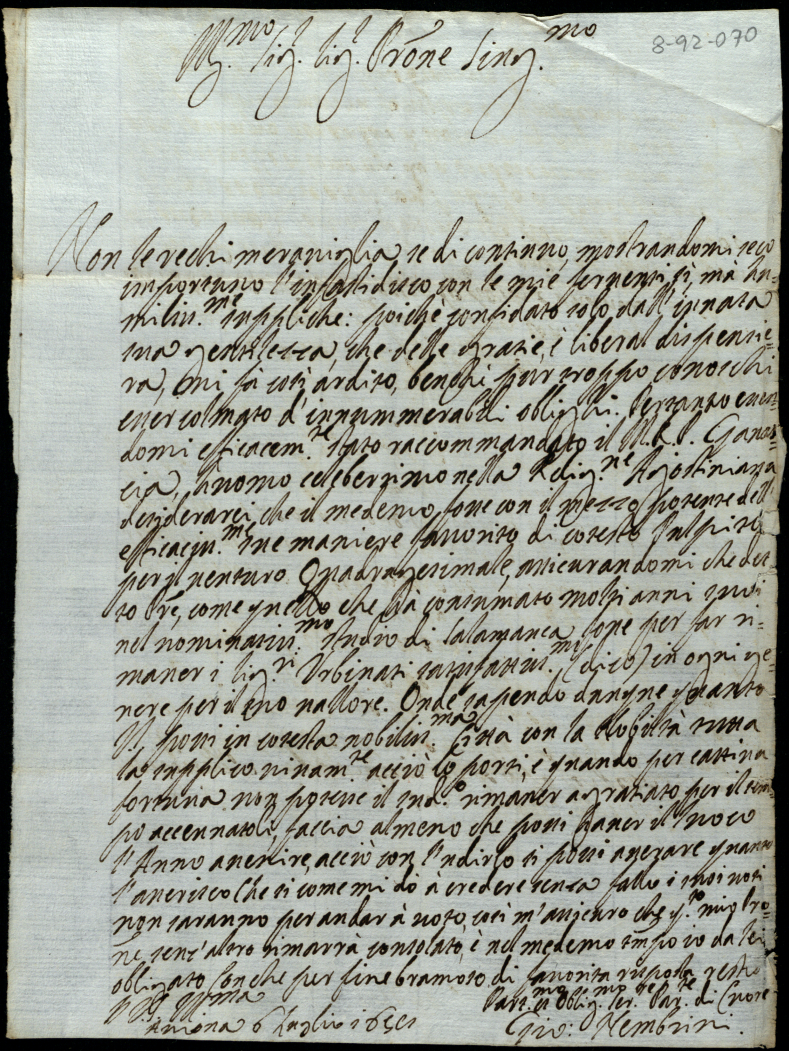 8-92-070
Ill.mo Sig.r Sig.r Prone Sing.mo
Non le rechi meraviglia, se di continuo, mostrandomi seco
importuno l'infastidisco con le mie ferventi sì, mà hu=
miliss.me suppliche: poiché confidato solo dall'innata
sua gentilezza, che delle gratie, è liberal dispensie=
ra, mi fà così ardito, benché pur troppo conoschi
esser colmato d'innummerabili oblighi. Pertanto essen=
domi efficacem.te stato raccommandato il M.R.P.
cia, huomo celeberrimo nella Relig.ne Agostiniana
desiderarei, che il medemo, fosse con il mezzo potente dell'
efficaciss.me sue maniere favorito di cotesto Pulpito
per il venturo Quadragesimale, assicurandomi che det=
to Pre, come quello che hà consumato molti anni suoi
nel nominatiss.mo studio di Salamanca, sone per far ri=
maner i Sig.ri Urbinati satisfattiss.mi (dico) in ogni ge=
nere per il suo vallore. Onde sapendo dunque quanto
possi in cotesta nobiliss.ma Città con la Nobiltà tutta
la supplico vivam.te acciò lo porti, è quando per cattiva
fortuna non potesse il sud.o rimaner agratiato per il tem=
po accennatoli, faccia almeno che possi haver il luoco
l'Anno avenire, acciò con l'udirlo si possi
l'aserisco Che si come mi dò à credere senza fallo i suoi voti
non saranno per andar à voto, così m'assicuro che q.to mio Pro=
ne, senz'altro rimarrà consolato, è nel medemo tempo io da lei
obligato Con che per fine bramoso di favorita risposta resto
Di V.S. Ill.ma
Part.mo et Oblig.mo Ser.re Par.te di Cuore
Ancona 6 Luglio
Gio: Nembrini.